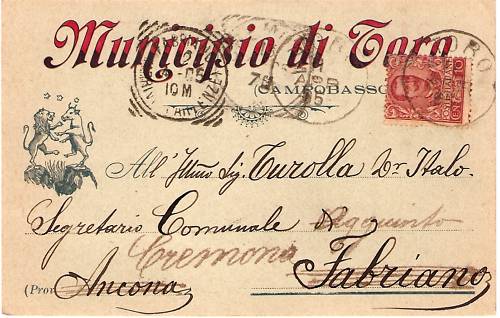 Municipio di Toro
CAMPOBASSO
10 M
TORO
All' Illmo Sig. Turolla Dr Italo.
Segretario Comunale
Cremona
Fabriano
(Prov Ancona